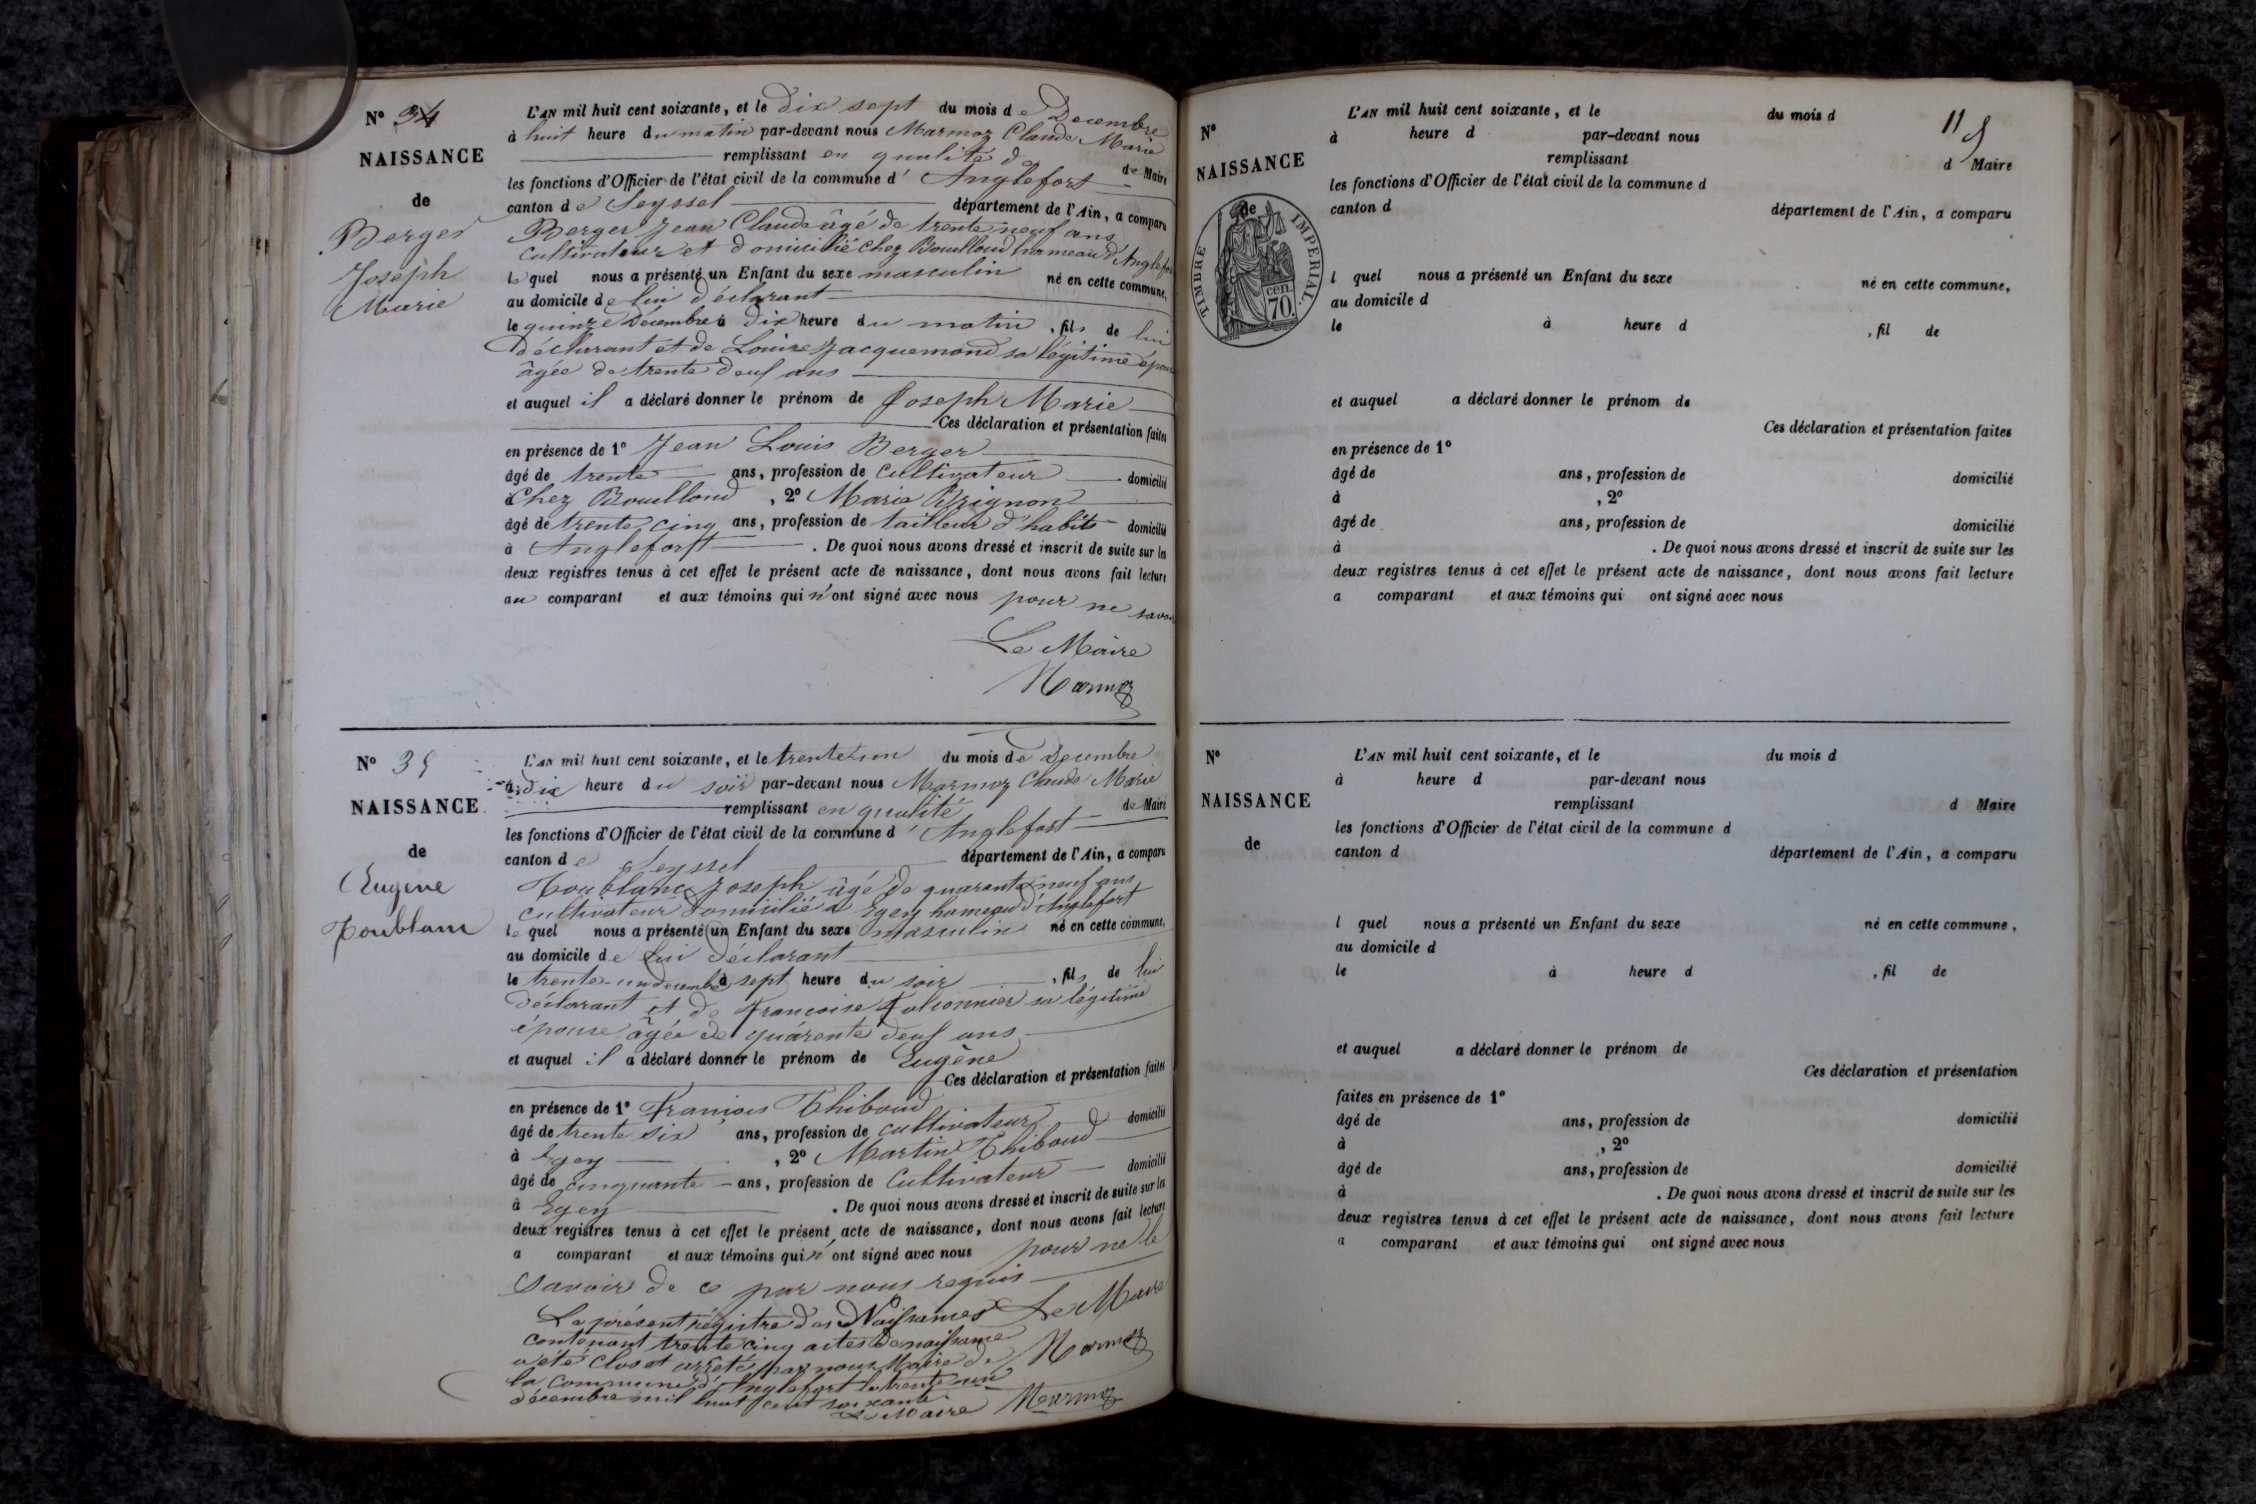 N° 34
NAISSANCE
de
Berger
Joseph
Marie
L'AN mil huit cent soixante, et le dix sept du mois de Decembre
à huit heure du matin par-devant nous Marmoz Claude Marie
remplissant en qualité de de Maire
les fonctions d'Officier de l'état civil de la commune d' Anglefort
canton de Seyssel département de l'Ain, a comparu
Berger Jean Claude âgé de trente neuf ans
cultivateur et domicilié chez Bouilloud hameau d'Anglefort
lequel nous a présenté un Enfant du sexe masculin né en cette commune,
au domicile de lui déclarant
le quinze Décembre à dix heure du matin, fils de lui
déclarant et de Louise Jacquemond sa légitime épouse
âgée de trente deux ans
et auquel il a déclaré donner le prénom de Joseph Marie
Ces déclaration et présentation faites
en présence de 1° Jean Louis Berger
âgé de trente ans, profession de cultivateur domicilié
à Chez Bouilloud, 2° Marie Brignon
âgé de trente cinq ans, profession de tailleur d'habits domicilié
à Anglefort. De quoi nous avons dressé et inscrit de suite sur les
deux registres tenus à cet effet le présent acte de naissance, dont nous avons fait lecture
au comparant et aux témoins qui n'ont signé avec nous pour ne savoir
Le Maire
Marmoz
N° 35
NAISSANCE
de
Eugène
Toublanc
L'AN mil huit cent soixante, et le trente un du mois de Decembre
à dix heure du soir par-devant nous Marmoz Claude Marie
remplissant en qualité de Maire
les fonctions d'Officier de l'état civil de la commune d' Anglefort
canton de Seyssel département de l'Ain, a comparu
Toublanc Joseph âgé de quarante neuf ans
cultivateur domicilié à Egey hameau d'Anglefort
lequel nous a présenté un Enfant du sexe masculin né en cette commune,
au domicile de lui déclarant
le trente-un decembre à sept heure du soir, fils de lui
déclarant et de Francoise Falconnier sa légitime
épouse âgée de quarente deux ans
et auquel il a déclaré donner le prénom de Eugène
Ces déclaration et présentation faites
en présence de 1° François Thiboud
âgé de trente six ans, profession de cultivateur domicilié
à Egey, 2° Martin Thiboud
âgé de cinquante ans, profession de Cultivateur domicilié
à Egey. De quoi nous avons dressé et inscrit de suite sur les
deux registres tenus à cet effet le présent acte de naissance, dont nous avons fait lecture
a comparant et aux témoins qui n'ont signé avec nous pour ne le
savoir de ce par nous requis
Le présent régistre des Naissances Le Maire
contenant trente cinq actes de naissance
a été clos et arrêté par nous Maire de Marmoz
la commune d'Anglefort le trente un
décembre mil huit cent soixante
Le Maire Marmoz
N°
NAISSANCE
de
TIMBRE IMPERIAL.
70. cen
L'AN mil huit cent soixante, et le du mois d
11 9
à heure d par-devant nous
remplissant d Maire
les fonctions d'Officier de l'état civil de la commune d
canton d département de l'Ain, a comparu
l quel nous a présenté un Enfant du sexe né en cette commune,
au domicile d
le à heure d, fil de
et auquel a déclaré donner le prénom de
Ces déclaration et présentation faites
en présence de 1°
âgé de ans, profession de domicilié
à, 2°
âgé de ans, profession de domicilié
à. De quoi nous avons dressé et inscrit de suite sur les
deux registres tenus à cet effet le présent acte de naissance, dont nous avons fait lecture
a comparant et aux témoins qui ont signé avec nous
N°
NAISSANCE
de
L'AN mil huit cent soixante, et le du mois d
à heure d par-devant nous
remplissant d Maire
les fonctions d'Officier de l'état civil de la commune d
canton d département de l'Ain, a comparu
l quel nous a présenté un Enfant du sexe né en cette commune,
au domicile d
le à heure d, fil de
et auquel a déclaré donner le prénom de
Ces déclaration et présentation
faites en présence de 1°
âgé de ans, profession de domicilié
à, 2°
âgé de ans, profession de domicilié
à. De quoi nous avons dressé et inscrit de suite sur les
deux registres tenus à cet effet le présent acte de naissance, dont nous avons fait lecture
a comparant et aux témoins qui ont signé avec nous